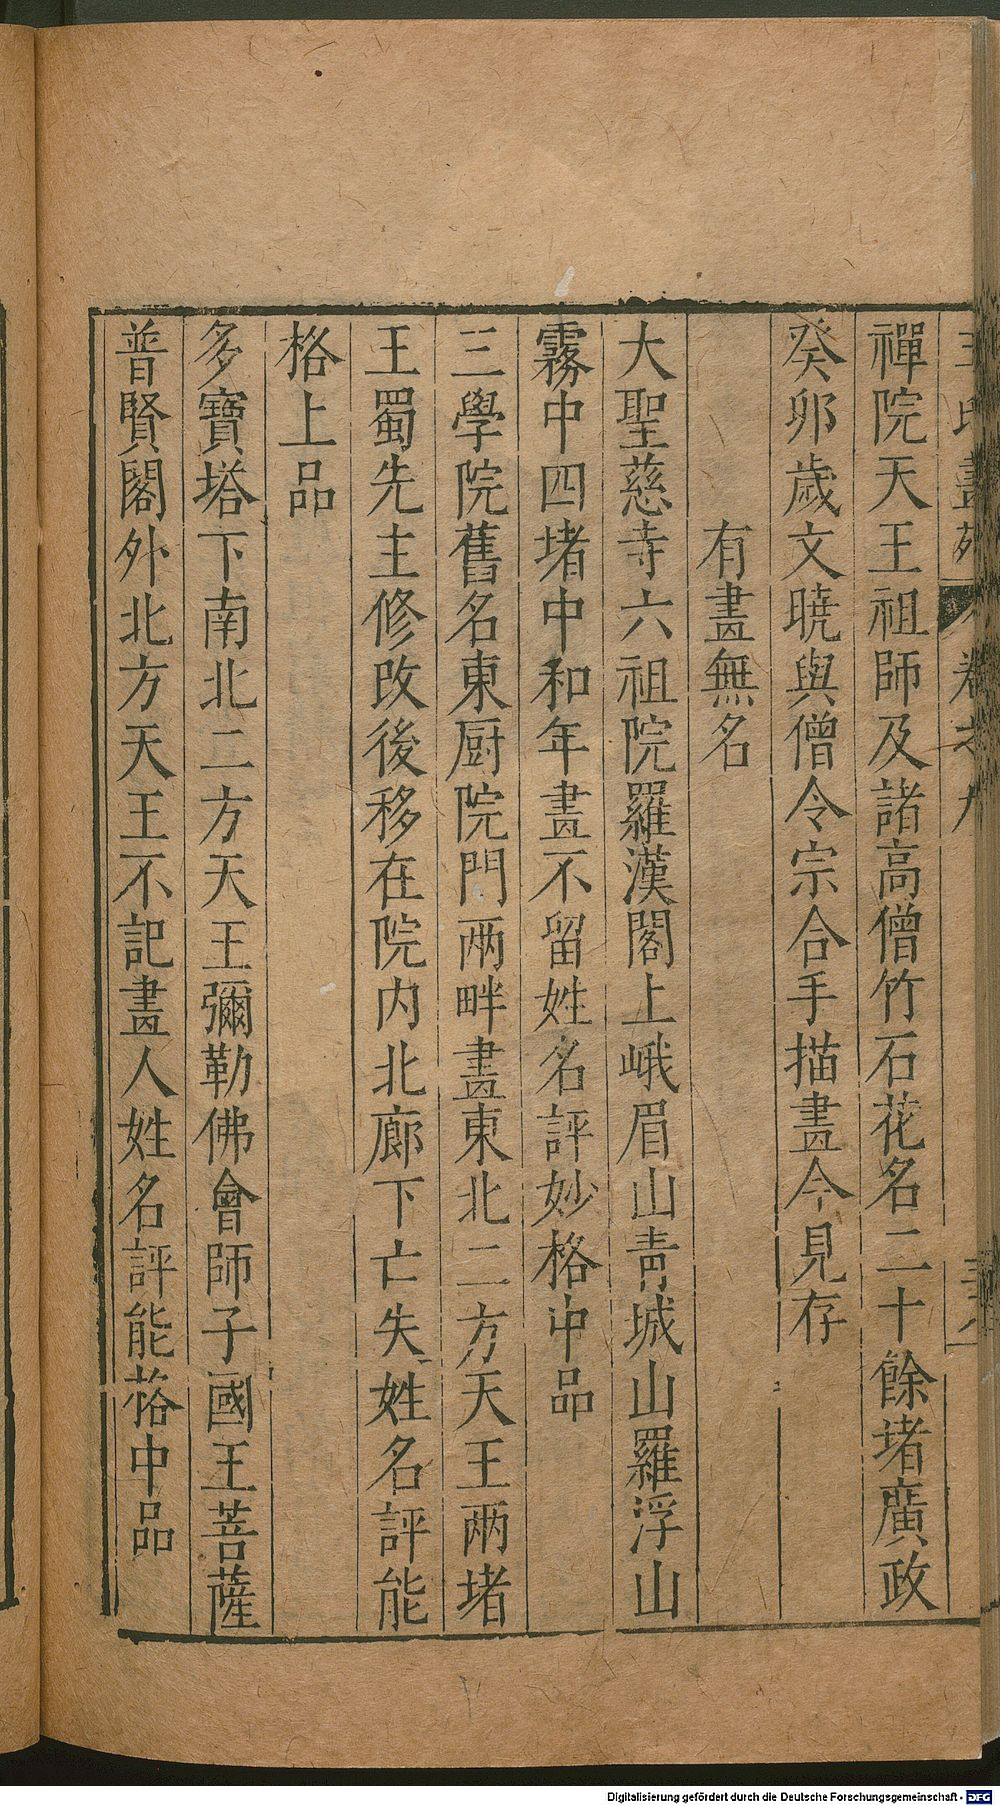 王氏畫苑 卷之九
禪院天王祖師及諸高僧竹石花名二十餘堵廣政
癸卯歲文曉與僧令宗合手描畫今見存
有畫無名
大聖慈寺六祖院羅漢閣上峨眉山青城山羅浮山
霧中四堵中和年畫不留姓名評妙格中品
三學院舊名東厨院門兩畔畫東北二方天王兩堵
王蜀先主修改後移在院内北廊下亡失姓名評能
格上品
多寶塔下南北二方天王彌勒佛會師子國王菩薩
普賢閣外北方天王不記畫人姓名評能格中品
Digitalisierung gefördert durch die Deutsche Forschungsgemeinschaft - DFG